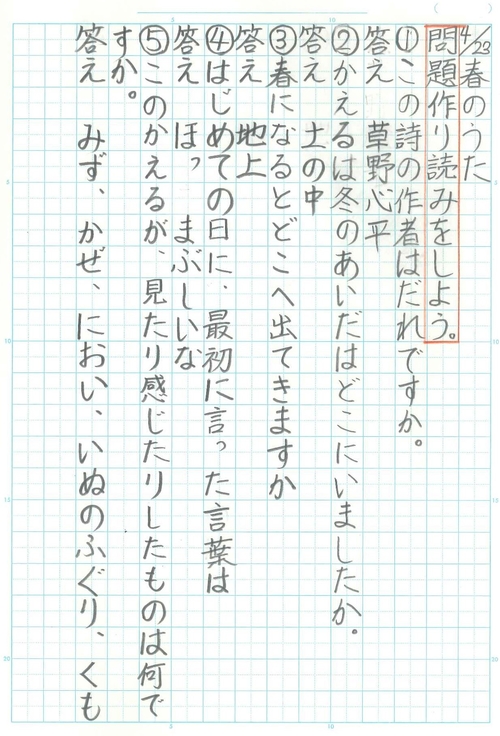 4/23 春のうた
問題作り読みをしよう。
①この詩の作者はだれですか。
答え 草野心平
②かえるは冬のあいだはどこにいましたか。
答え 土の中
③春になるとどこへ出てきますか
答え 地上
④はじめての日に、最初に言った言葉は
答え ほっ まぶしいな
⑤このかえるが、見たり感じたりしたものは何で
すか。
答え みず、かぜ、におい、いぬのふぐり、くも